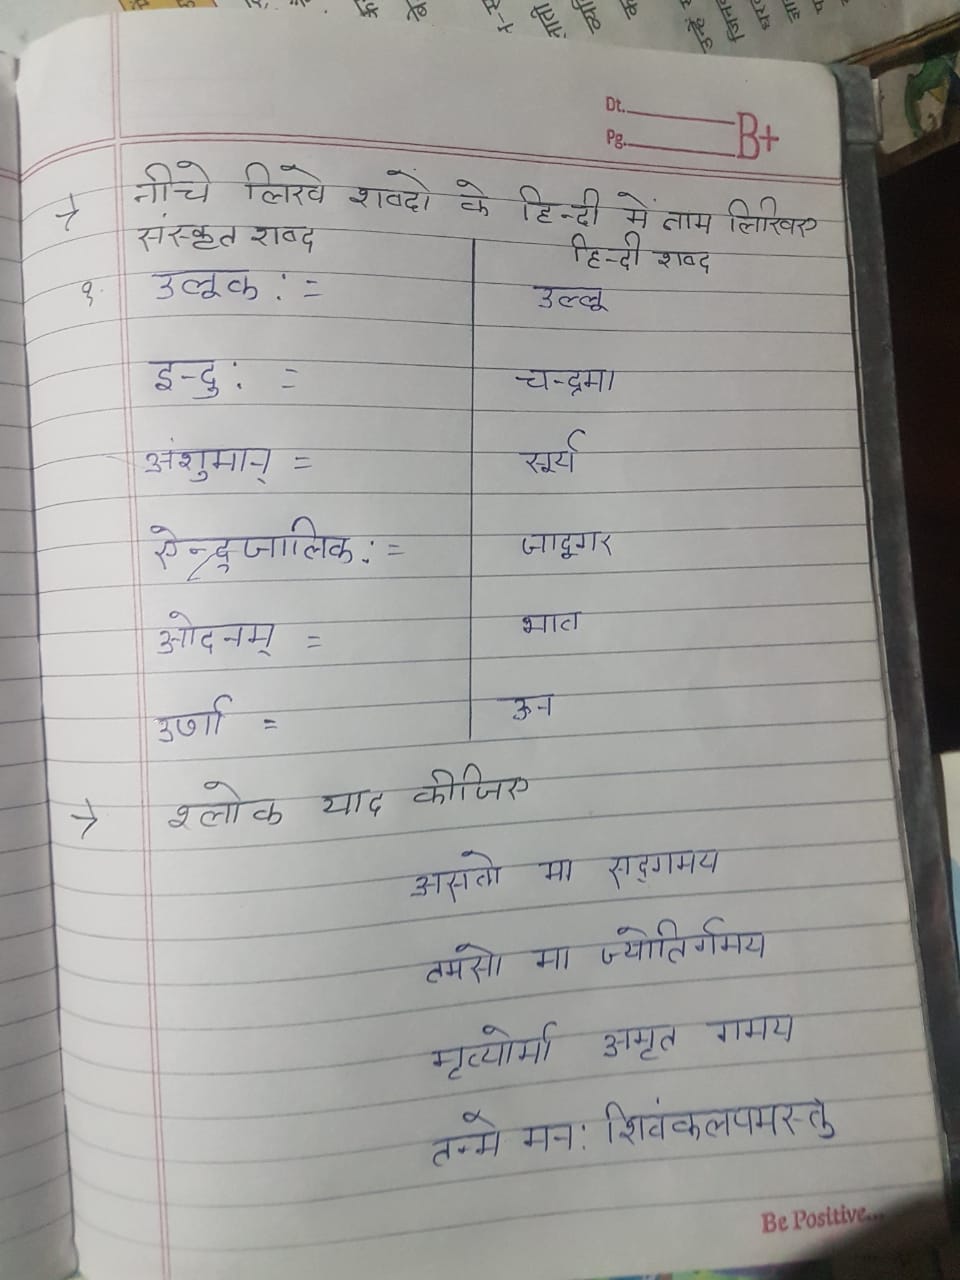 Dt.
Pg.
B+
→ नीचे लिखे शवदों के हिन्दी में नाम लिखिए
संस्कृत शवद हिन्दी शवद
१. उलूक : = उल्लू
इन्दु : = चन्द्रमा
अंशुमान् = सूर्य
ऐन्द्रजालिक : = जादूगर
ओदनम् = भात
उर्णा = ऊन
→ श्लोक याद कीजिए
असतो मा सद्गमय
तमसो मा ज्योतिर्गमय
मृत्योर्मा अमृत गमय
तन्मे मन : शिवंकलपमस्तु
Be Positive...